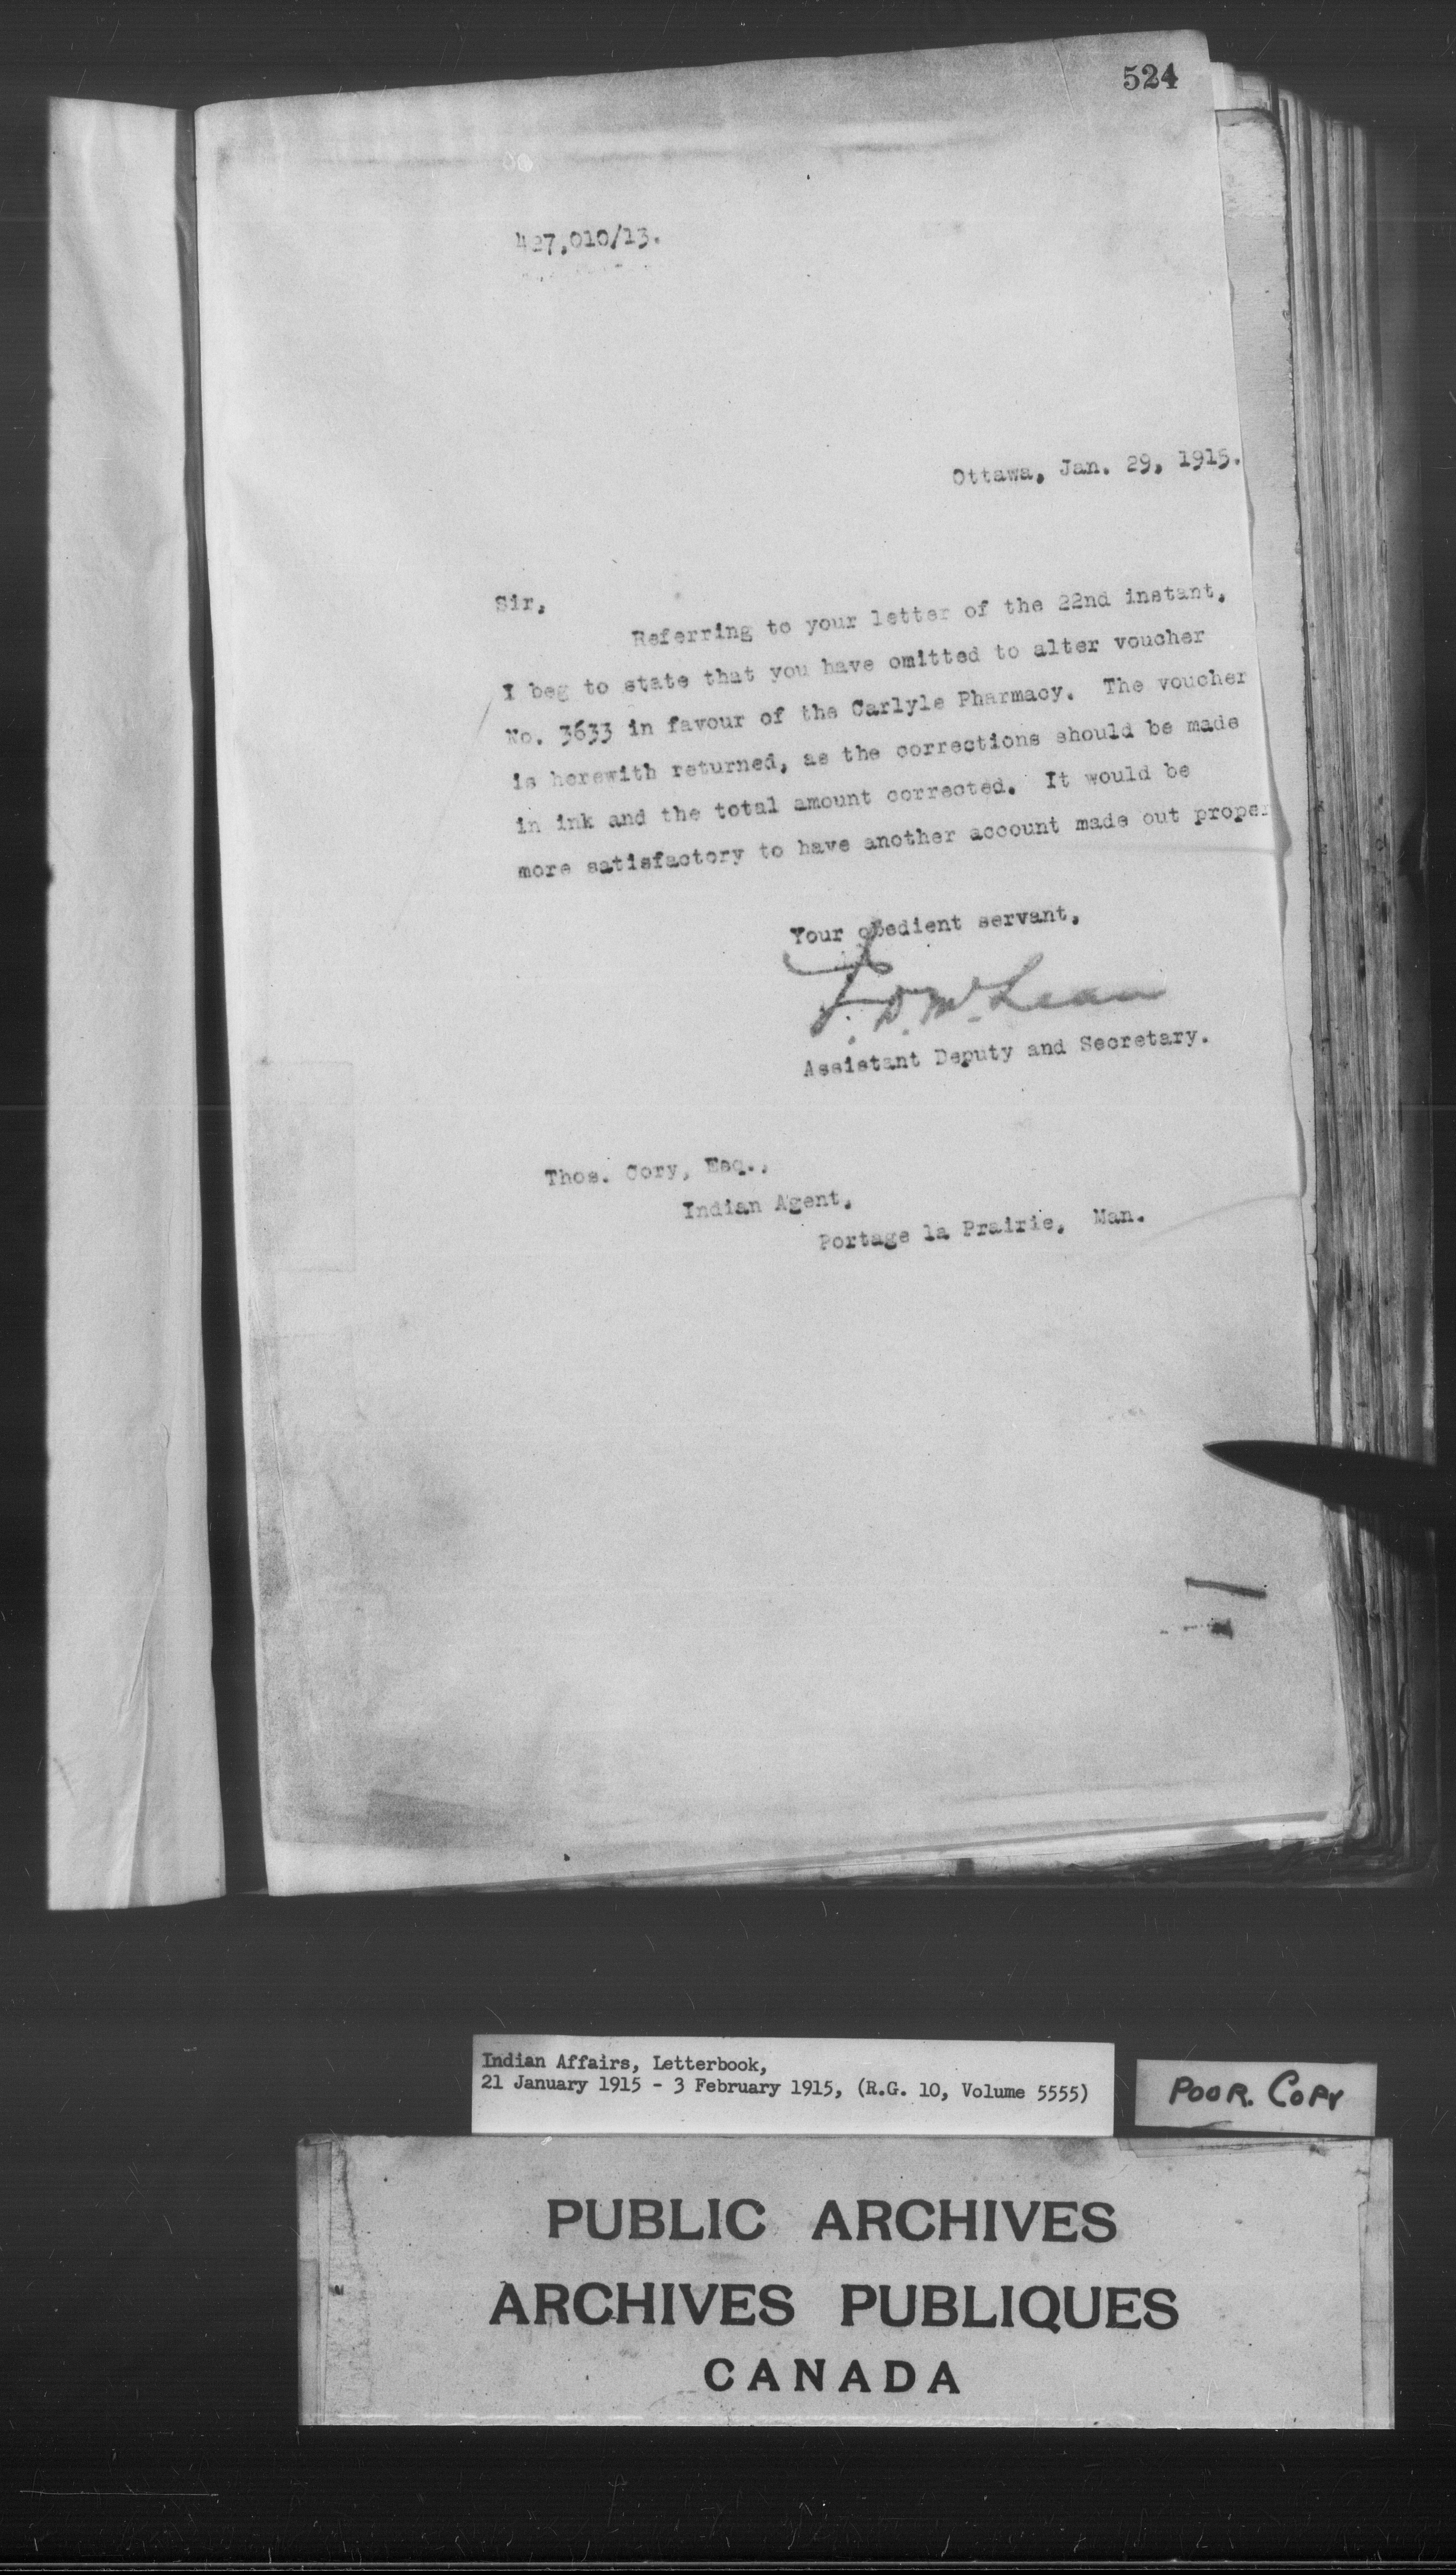 524
427,010/13.
Ottawa, Jan. 29, 1915.
Sir,
Referring to your letter of the 22nd instant,
I beg to state that you have omitted to alter voucher
No. 3633 in favour of the Carlyle Pharmacy. The voucher
is herewith returned, as the corrections should be made
in ink and the total amount corrected. It would be
more satisfactory to have another account made out proper
Your obedient servant,
J. D. McLean
Assistant Deputy and Secretary.
Thos. Cory, Esq.,
Indian Agent,
Portage la Prairie, Man.
Indian Affairs, Letterbook,
21 January 1915 - 3 February 1915, (R.G. 10, Volume 5555)
POOR. COPY
PUBLIC ARCHIVES
ARCHIVES PUBLIQUES
CANADA